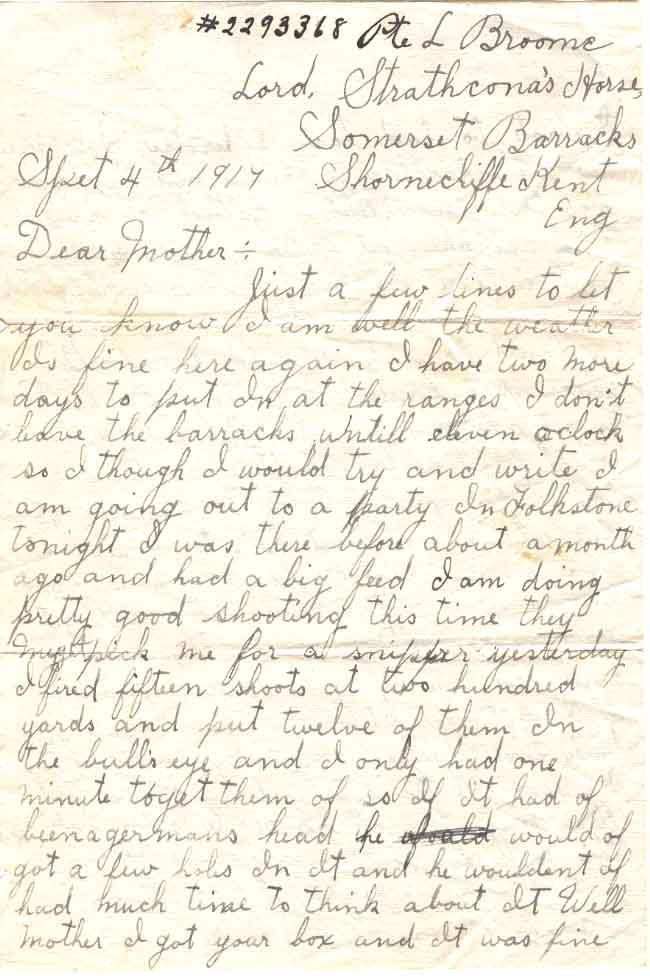 #2293368 Pte L Broome
Lord. Strathcona's Horse,
Somerset Barracks
Spet 4th 1917 Shornecliffe Kent
Eng
Dear Mother ÷
Just a few lines to let
you know I am well the weather
Is fine here again I have two more
days to put In at the ranges I don't
leave the barracks untill eleven oclock
so I though I would try and write I
am going out to a party In Folkstone
tonight I was there before about a month
ago and had a big feed I am doing
pretty good shooting this time they
might pick me for a snipper yesterday
I fired fifteen shoots at two hundred
yards and put twelve of them In
the bull's eye and I only had one
minute to get them of so If It had of
been a germans head he would of
got a few hols In It and he wouldent of
had much time to think about It Well
Mother I got your box and It was fine